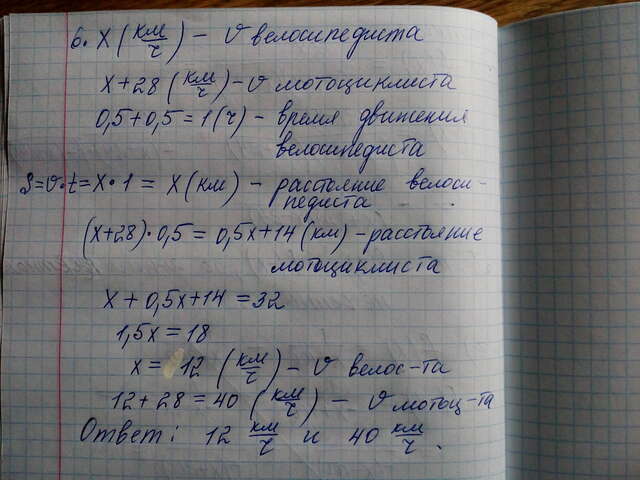 6. x (км/ч) – v велосипедиста
x+28 (км/ч) – v мотоциклиста
0,5+0,5=1(ч) – время движения
велосипедиста
S=v·t=x·1=x(км) – расстояние велоси-
педиста
(x+28)·0,5=0,5x+14(км)–расстояние
мотоциклиста
x+0,5x+14=32
1,5x=18
x= 12 (км/ч) – v велос-та
12+28=40 (км/ч) – v мотоц-та
Ответ: 12 км/ч и 40 км/ч.